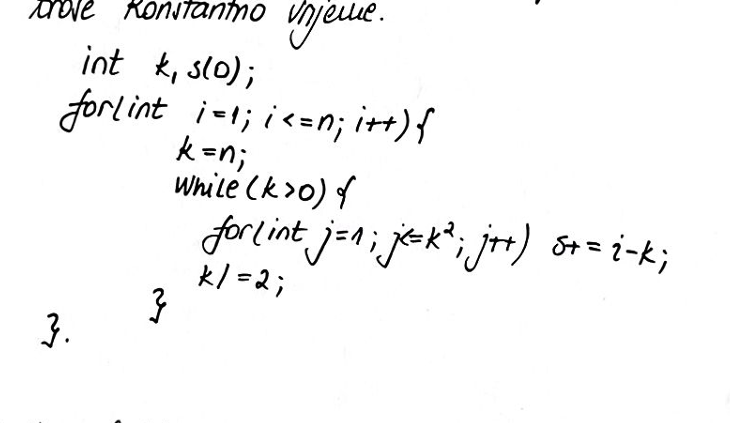 troše konstantno vrijeme.
int k, s(0);
for(int i=1; i<=n; i++){
k=n;
while(k>0){
for(int j=1; j<=k²; j++) s+=i-k;
k/=2;
}
}.